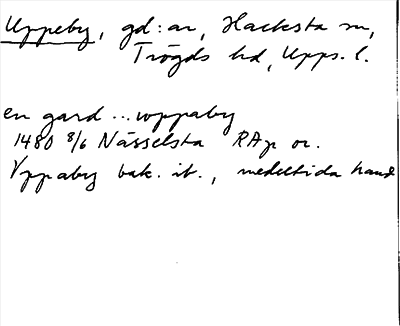 Uppeby, gd:ar, Hacksta sn,
Trögds hd, Upps. l.
en gard ... uppaby
1480 8/6 Nässelsta RAp or.
Vppaby bak. it., medeltida hand